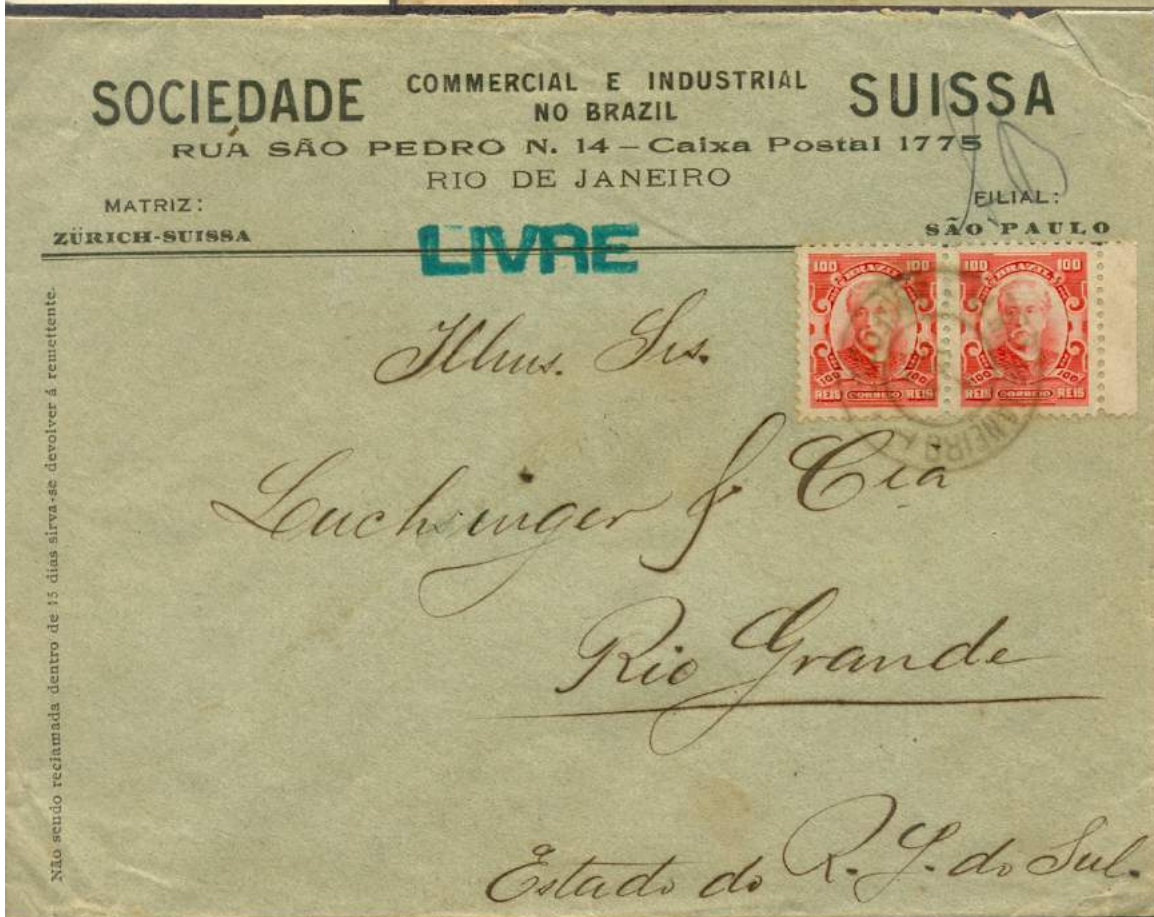 SOCIEDADE COMMERCIAL E INDUSTRIAL NO BRAZIL SUISSA
RUA SÃO PEDRO N. 14 – Caixa Postal 1775
RIO DE JANEIRO
MATRIZ:
ZÜRICH-SUISSA
FILIAL:
SÃO PAULO
LIVRE
100 BRAZIL 100
100 100
REIS CORREIO REIS
100 BRAZIL 100
100 100
REIS CORREIO REIS
Illms. Srs.
Luchsinger & Cia
Rio Grande
Estado do R. G. do Sul.
Não sendo reclamada dentro de 15 dias sirva-se devolver á remettente.